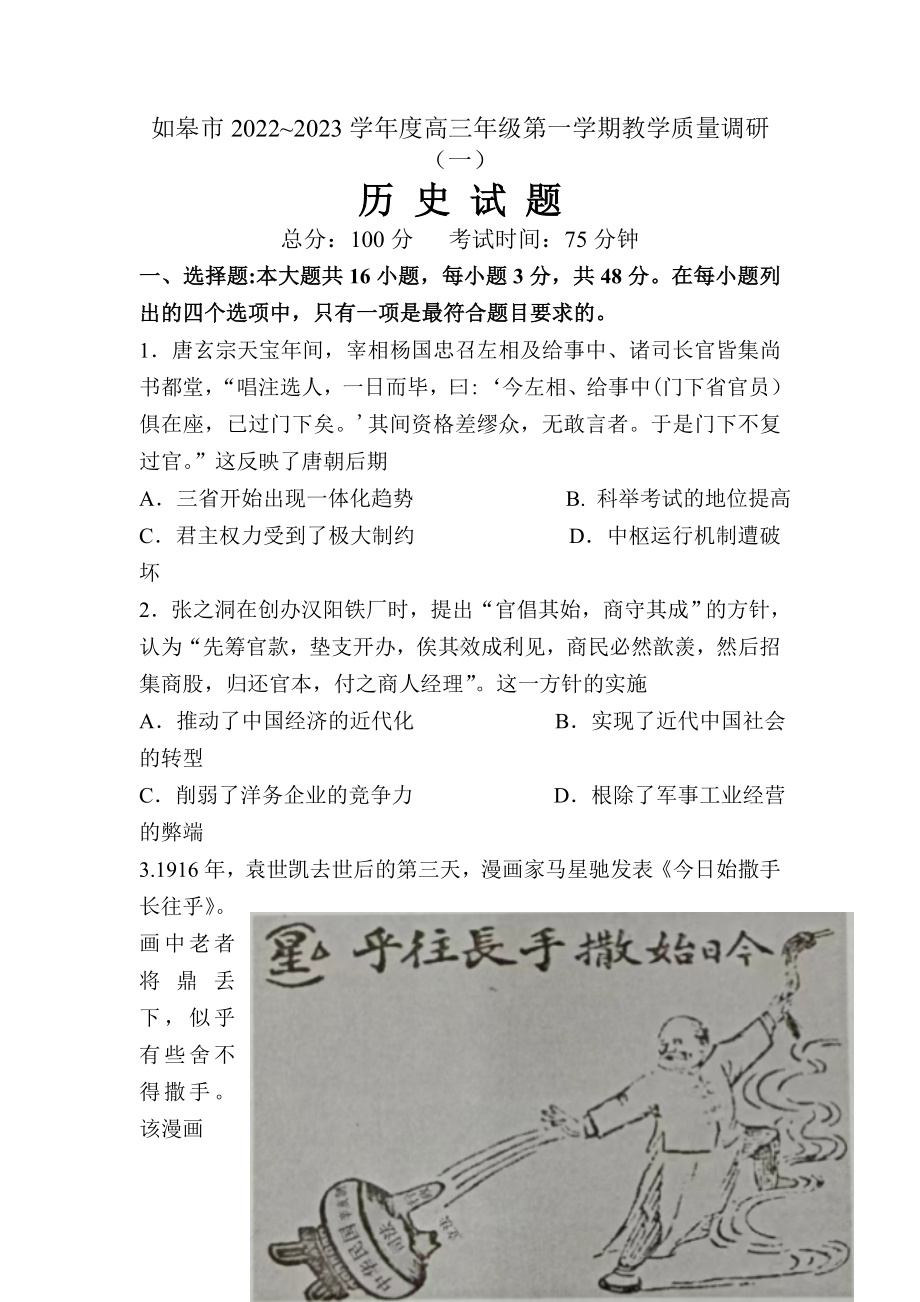 如皋市 2022~2023 学年度高三年级第一学期教学质量调研
（一）
历 史 试 题
总分：100 分 考试时间：75 分钟
一、选择题:本大题共 16 小题，每小题 3 分，共 48 分。在每小题列
出的四个选项中，只有一项是最符合题目要求的。
1．唐玄宗天宝年间，宰相杨国忠召左相及给事中、诸司长官皆集尚
书都堂，“唱注选人，一日而毕，曰:‘今左相、给事中(门下省官员）
俱在座，已过门下矣。'其间资格差缪众，无敢言者。于是门下不复
过官。”这反映了唐朝后期
A．三省开始出现一体化趋势 B. 科举考试的地位提高
C．君主权力受到了极大制约 D．中枢运行机制遭破
坏
2．张之洞在创办汉阳铁厂时，提出“官倡其始，商守其成”的方针，
认为“先筹官款，垫支开办，俟其效成利见，商民必然歆羡，然后招
集商股，归还官本，付之商人经理”。这一方针的实施
A．推动了中国经济的近代化 B．实现了近代中国社会
的转型
C．削弱了洋务企业的竞争力 D．根除了军事工业经营
的弊端
3.1916 年，袁世凯去世后的第三天，漫画家马星驰发表《今日始撒手
长往乎》。
画中老者
将鼎丢
下，似乎
有些舍不
得撒手。
该漫画
(星) 乎往長手撒始日今
中华民国
司法
立法